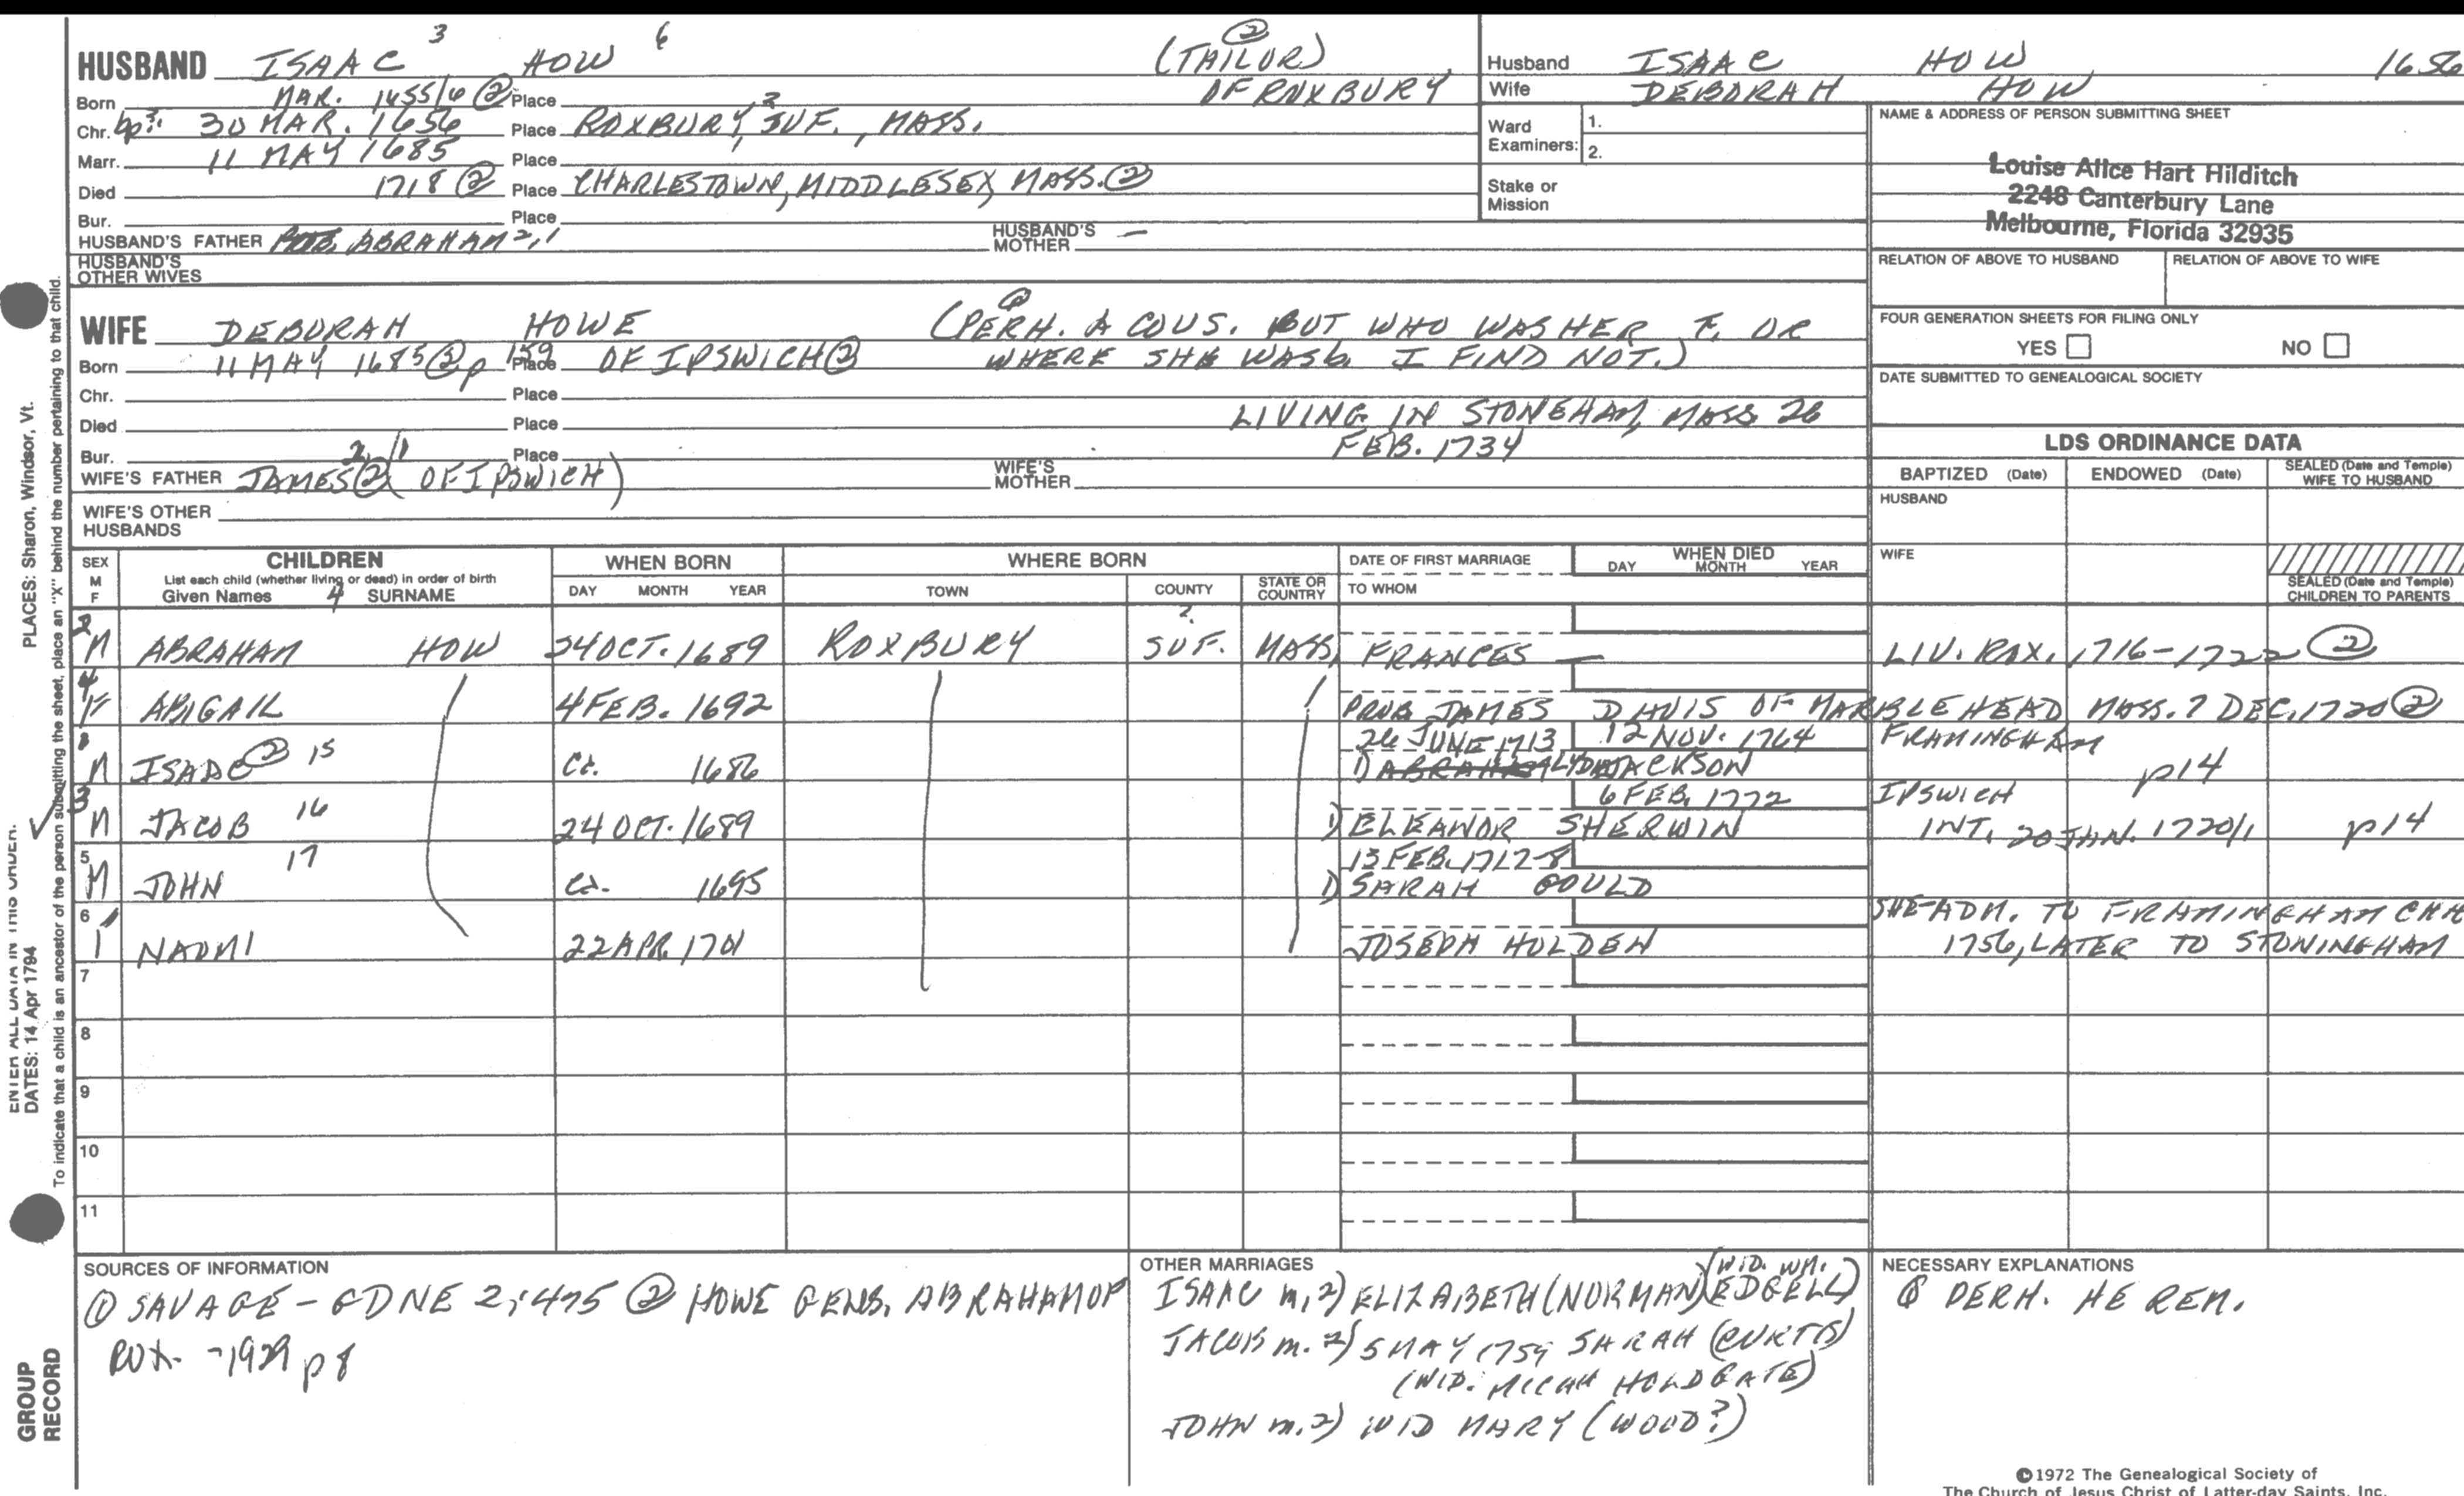 HUSBAND ISAAC 3 HOW 6 (TAILOR) ②
Born MAR. 1655/6 ② Place OF ROXBURY
Chr. bp3: 30 MAR. 1656 Place ROXBURY, SUF., MASS. ?
Marr. 11 MAY 1685 Place
Died 1718 ② Place CHARLESTOWN, MIDDLESEX, MASS. ②
Bur. Place
HUSBAND'S FATHER ABRAHAM 2,1 HUSBAND'S MOTHER —
HUSBAND'S OTHER WIVES
Husband ISAAC HOW 1656
Wife DEBORAH HOW
Ward Examiners: 1.
2.
Stake or Mission
NAME & ADDRESS OF PERSON SUBMITTING SHEET
Louise Alice Hart Hilditch
2248 Canterbury Lane
Melbourne, Florida 32935
RELATION OF ABOVE TO HUSBAND RELATION OF ABOVE TO WIFE
FOUR GENERATION SHEETS FOR FILING ONLY
YES NO
DATE SUBMITTED TO GENEALOGICAL SOCIETY
WIFE DEBORAH HOWE (PERH. A COUS. BUT WHO WAS HER F. OR
Born 11 MAY 1685 ② p 159 Place OF IPSWICH ② WHERE SHE WAS b. I FIND NOT.)
Chr. Place
Died Place LIVING IN STONEHAM, MASS 26
Bur. Place FEB. 1734
WIFE'S FATHER JAMES 2/1 ② OF IPSWICH) WIFE'S MOTHER
WIFE'S OTHER HUSBANDS
LDS ORDINANCE DATA
BAPTIZED (Date) ENDOWED (Date) SEALED (Date and Temple) WIFE TO HUSBAND
HUSBAND
WIFE
SEALED (Date and Temple) CHILDREN TO PARENTS
SEX M F CHILDREN WHEN BORN WHERE BORN DATE OF FIRST MARRIAGE WHEN DIED
List each child (whether living or dead) in order of birth
Given Names 4 SURNAME DAY MONTH YEAR TOWN COUNTY STATE OR COUNTRY TO WHOM DAY MONTH YEAR
2 M ABRAHAM HOW 24 OCT. 1689 ROXBURY SUF. ? MASS. FRANCES — LIV. ROX. 1716-1722 ②
4 F ABIGAIL 4 FEB. 1692 PROB JAMES DAVIS OF MARBLEHEAD MASS. 7 DEC. 1720 ②
26 JUNE 1713 12 NOV. 1764 FRAMINGHAM
M ISAAC ② 15 CA. 1686 1) LYDIA JACKSON p14
6 FEB. 1772 IPSWICH
3 M JACOB 16 24 OCT. 1689 1) ELEANOR SHERWIN INT. 20 JAN. 1720/1 p14
13 FEB. 1717-8
5 M JOHN 17 CA. 1695 1) SARAH GOULD
6 NAOMI 22 APR. 1701 JOSEPH HOLDEN SHE ADM. TO FRAMINGHAM CHH
1756, LATER TO STONINGHAM
7
8
9
10
11
SOURCES OF INFORMATION
① SAVAGE - GDNE 2:475 ② HOWE GENS. ABRAHAM OF
ROX. - 1929 p 8
OTHER MARRIAGES
ISAAC m. 2) ELIZABETH (NORMAN) (WID. WM. EDGELL)
JACOB m. 2) 5 MAY 1759 SARAH (CURTIS)
(WID. MICAH HOLDGATE)
JOHN m. 2) WID MARY (WOOD?)
NECESSARY EXPLANATIONS
PERH. HE REM.
©1972 The Genealogical Society of
The Church of Jesus Christ of Latter-day Saints, Inc.
PLACES: Sharon, Windsor, Vt.
ENTER ALL DATA IN THIS ORDER.
DATES: 14 Apr 1794
To indicate that a child is an ancestor of the person submitting the sheet, place an "X" behind the number pertaining to that child.
GROUP
RECORD